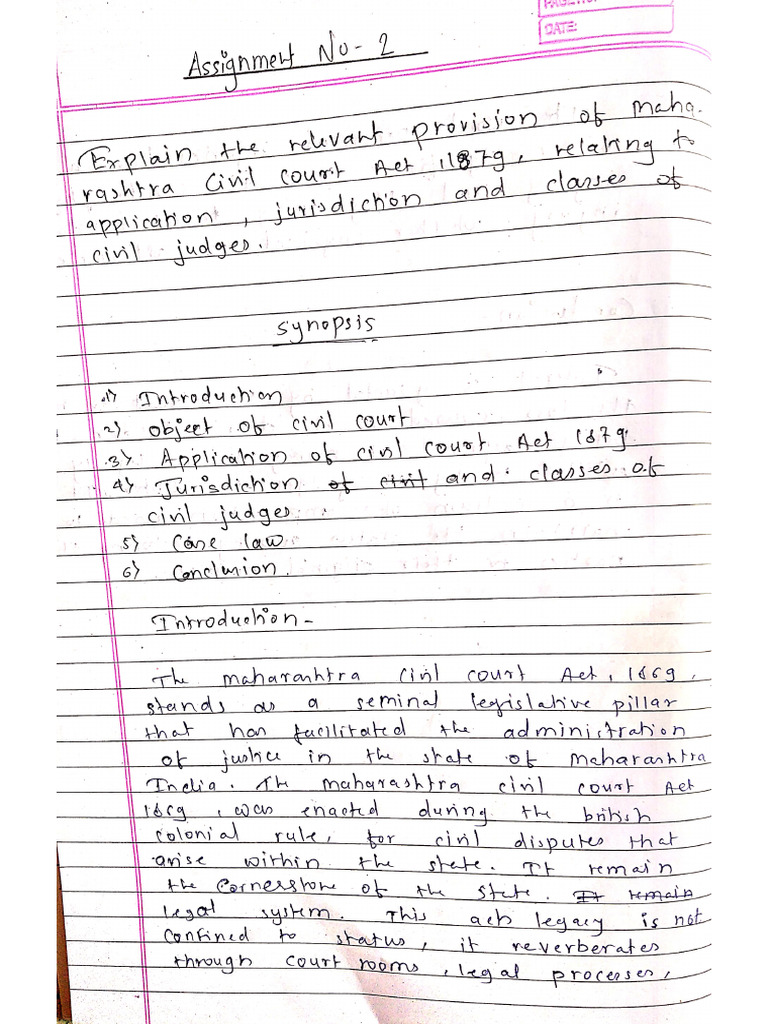 DATE:
Assignment No - 2
Explain the relevant provision of maha.
rashtra Civil court Act, 1879, relating to
application, jurisdiction and classes of
civil judges.
Synopsis
1) Introduction
2) object of civil court
3) Application of civil court Act 1879
4) Jurisdiction of civil and classes of
civil judges.
5) Case law
6) Conclusion.
Introduction -
The maharashtra civil court Act, 1869,
stands as a seminal legislative pillar
that has facilitated the administration
of justice in the state of maharashtra
India. The maharashtra civil court Act
1869, was enacted during the british
colonial rule, for civil disputes that
arise within the state. It remain
the cornerstone of the state. It remain
legal system. This acts legacy is not
confined to status, it reverberates
through court rooms, legal processes,